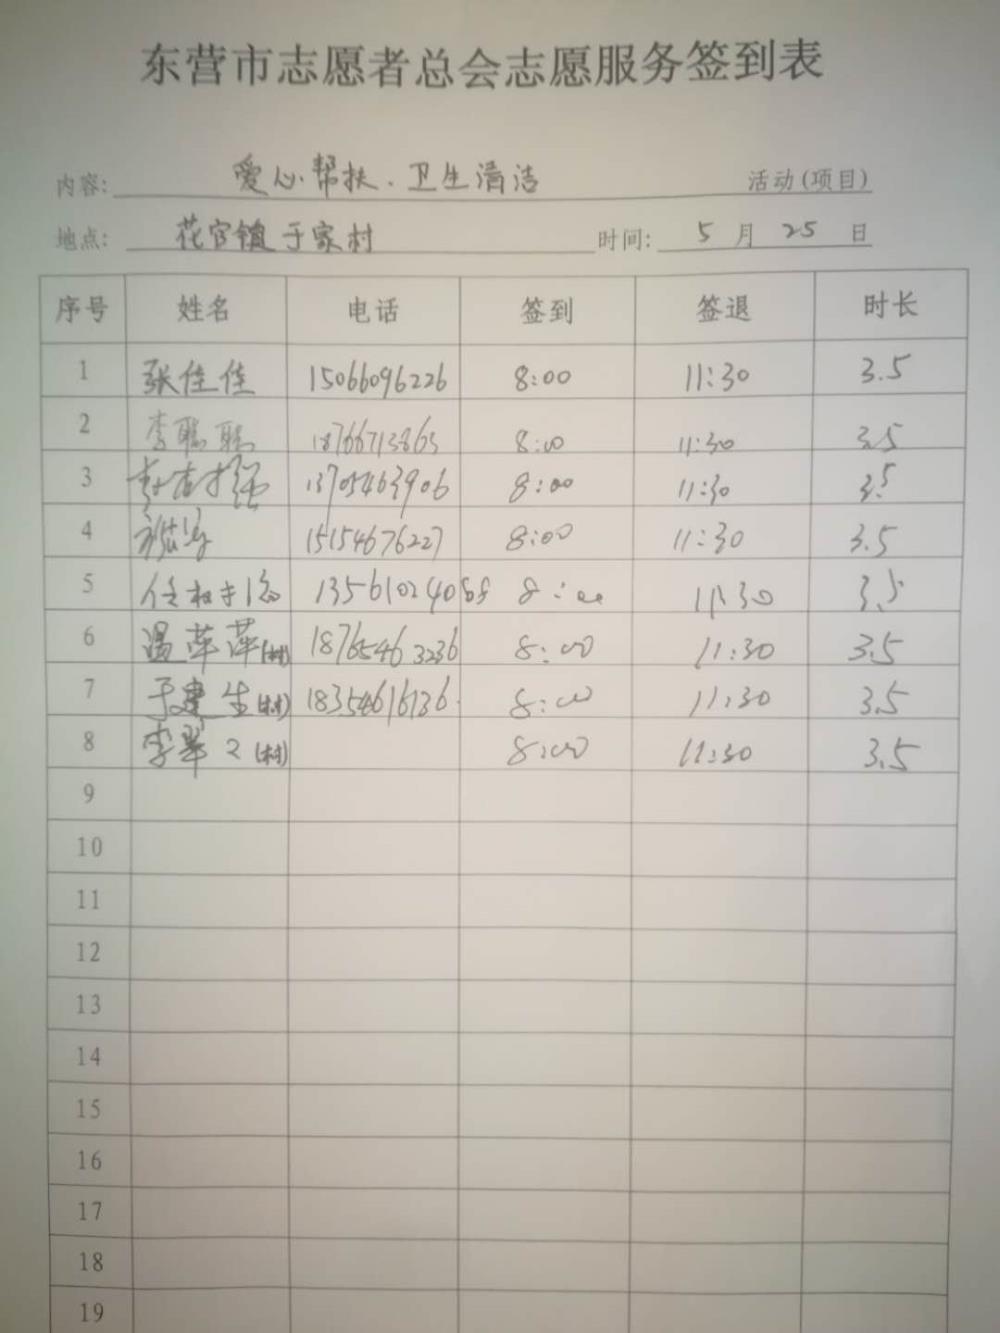 东营市志愿者总会志愿服务签到表
内容: 爱心帮扶、卫生清洁 活动(项目)
地点: 花官镇于家村 时间: 5 月 25 日
序号 姓名 电话 签到 签退 时长
1 张佳佳 15066096226 8:00 11:30 3.5
2 李聪聪 18766713865 8:00 11:30 3.5
3 13705463906 8:00 11:30 3.5
4 15154676227 8:00 11:30 3.5
5 8:00 11:30 3.5
6 温萍萍(村) 18765463236 8:00 11:30 3.5
7 于建生(村) 18354616136 8:00 11:30 3.5
8 李翠2(村) 8:00 11:30 3.5
9
10
11
12
13
14
15
16
17
18
19